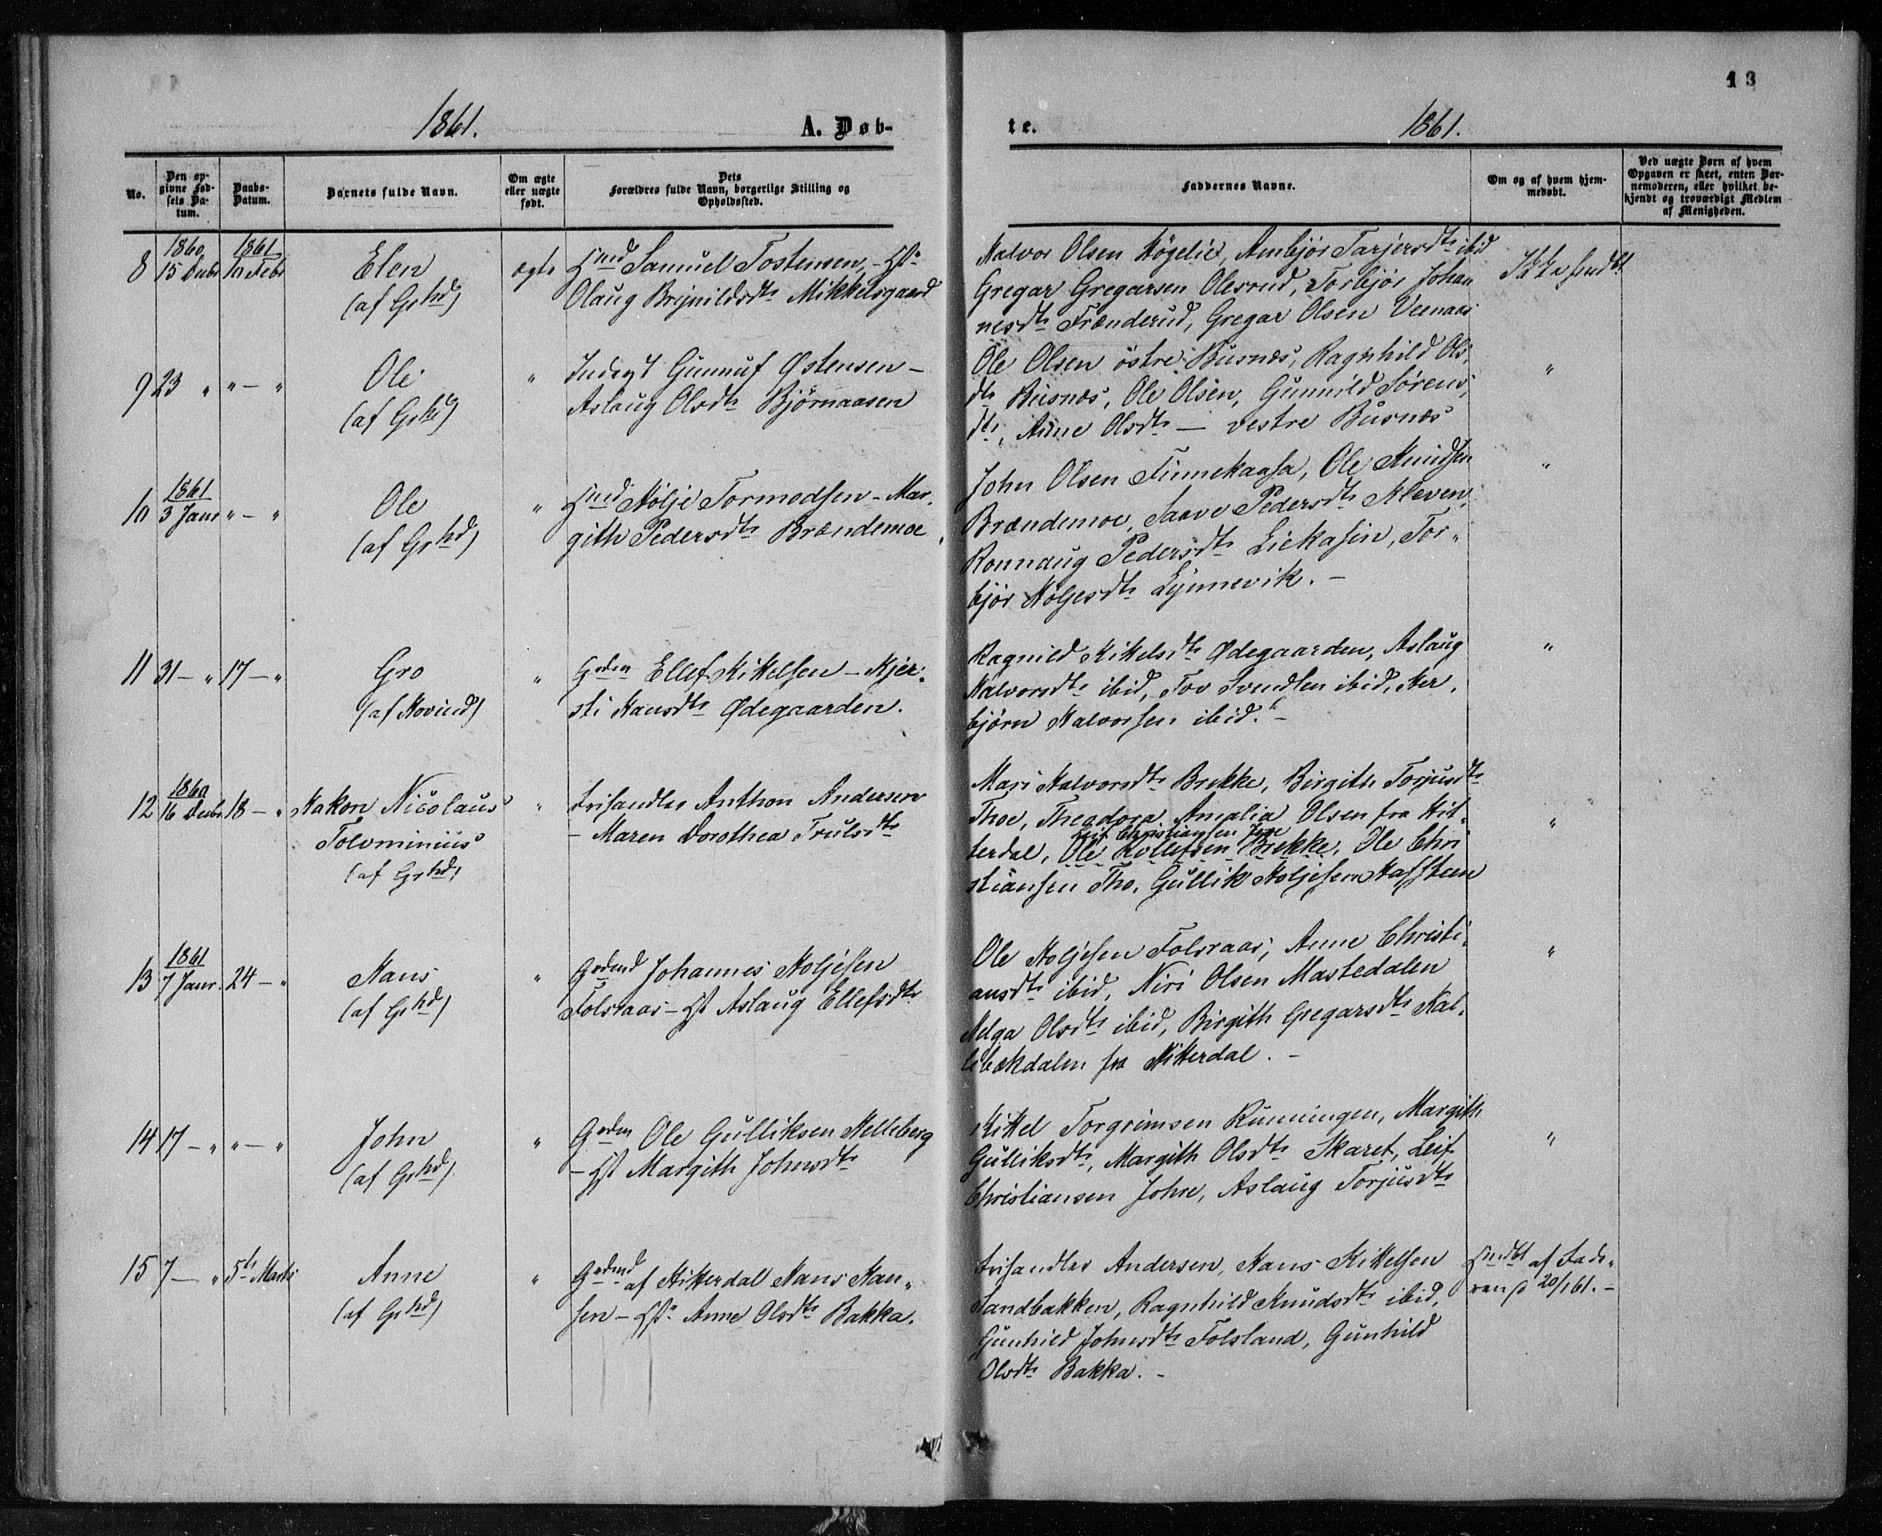 13
1861.
A. Døb-
te.
1861.
No.
Den op-
givne Fød-
sels Da-
tum.
Daabs-
Datum.
Barnets fulde Navn.
Om ægte
eller uægte
født.
Dets
Forældres fulde Navn, borgerlige Stilling og
Opholdssted.
Faddernes Navne.
Om og af hvem hjem-
medøbt.
Ved uægte Børn af hvem
Opgaven er skeet, enten Bar-
nemoderen, eller hvilket be-
kjendt og troværdigt Medlem
af Menigheden.
8
1860
15 Decbr
1861
10 Febr
Elen
(af Grhd)
ægte
Hmd Samuel Tostensen, - Hst
Olaug Brynildsdtr Mikkelsgaard
Halvor Olsen Høgelid, Ambjør Tarjersdtr ibid
Gregar Gregarsen Olesrud, Torbjør Johan
nesdtr Frænderud, Gregar Olsen Veenaas
Ikke hmdbt
9
23 "
" - "
Ole
(af Grhd)
"
Inderst Gunnuf Østensen -
Aslaug Olsdtr Bjørnaasen
Ole Olsen østre Busnæs, Ragnhild Ols
dtr Busnæs, Ole Olsen, Gunnild Sørens
dtr, Anne Olsdtr - vestre Busnæs
"
10
1861
3 Janr
" - "
Ole
(af Grhd)
"
Hmd Hølje Tormodsen - Mar-
gith Pedersdtr Brændemoe
John Olsen Finnekaasa, Ole Knudsen
Brændemoe, Saave Pedersdtr Kleven,
Ronnaug Pedersdtr Liekasin, Tor-
bjør Høljesdtr Lynnevik. -
"
11
31 - "
17 - "
Gro
(af Hovind)
"
Grden Ellef Kittelsen - Kjer-
sti Hansdtr Ødegaarden.
Ragnild Kittelsdtr Ødegaarden, Aslaug
Halvorsdtr ibid, Tov Svendsen ibid, Her-
bjørn Halvorsen ibid. -
"
12
1860
16 Decbr
18 - "
Hakon Nicolaus
Tolominius
(af Grhd)
"
Frihandler Anthon Andersen
- Maren Dorothea Trulsdtr
Mari Halvorsdtr Brekke, Birgith Torjusdtr
Thoe, Theodora Amalia Olsen fra Hit-
Leif Christiansen Jore
terdal, Ole Rollefsen Brekke, Ole Chri
stiansen Tho, Gullik Høljesen Hafsteen
"
13
1861
7 Janr.
24 - "
Hans
(af Grhd)
"
Grdmd Johannes Høljesen
Folsraas - Hst Aslaug Ellefsdtr
Ole Høljesen Folsraas, Anne Christi-
ansdtr ibid, Niri Olsen Mastedalen
Helga Olsdtr ibid, Birgith Gregarsdtr Kal-
lebækdalen fra Hitterdal. -
"
14
17 - "
" - "
John
(af Grhd)
"
Grden Ole Gulliksen Helleberg
- Hst Margith Johnsdtr
Kittel Torgrimsen Runningen, Margith
Gulliksdtr, Margith Olsdtr Skaret, Leif
Christiansen Johre, Aslaug Torjusdtr
"
15
7 - "
5te Marts
Anne
(af Grhd)
"
Grdmd af Hitterdal Hans Han-
sen - Hst Anne Olsdtr Bakka.
Frihandler Andersen, Hans Kittelsen
Sandbakken, Ragnhild Knudsdtr ibid,
Gunhild Johnsdtr Folsland, Gunhild
Olsdtr Bakka. -
Hmdbt af Fade-
ren p 20/1 61. -